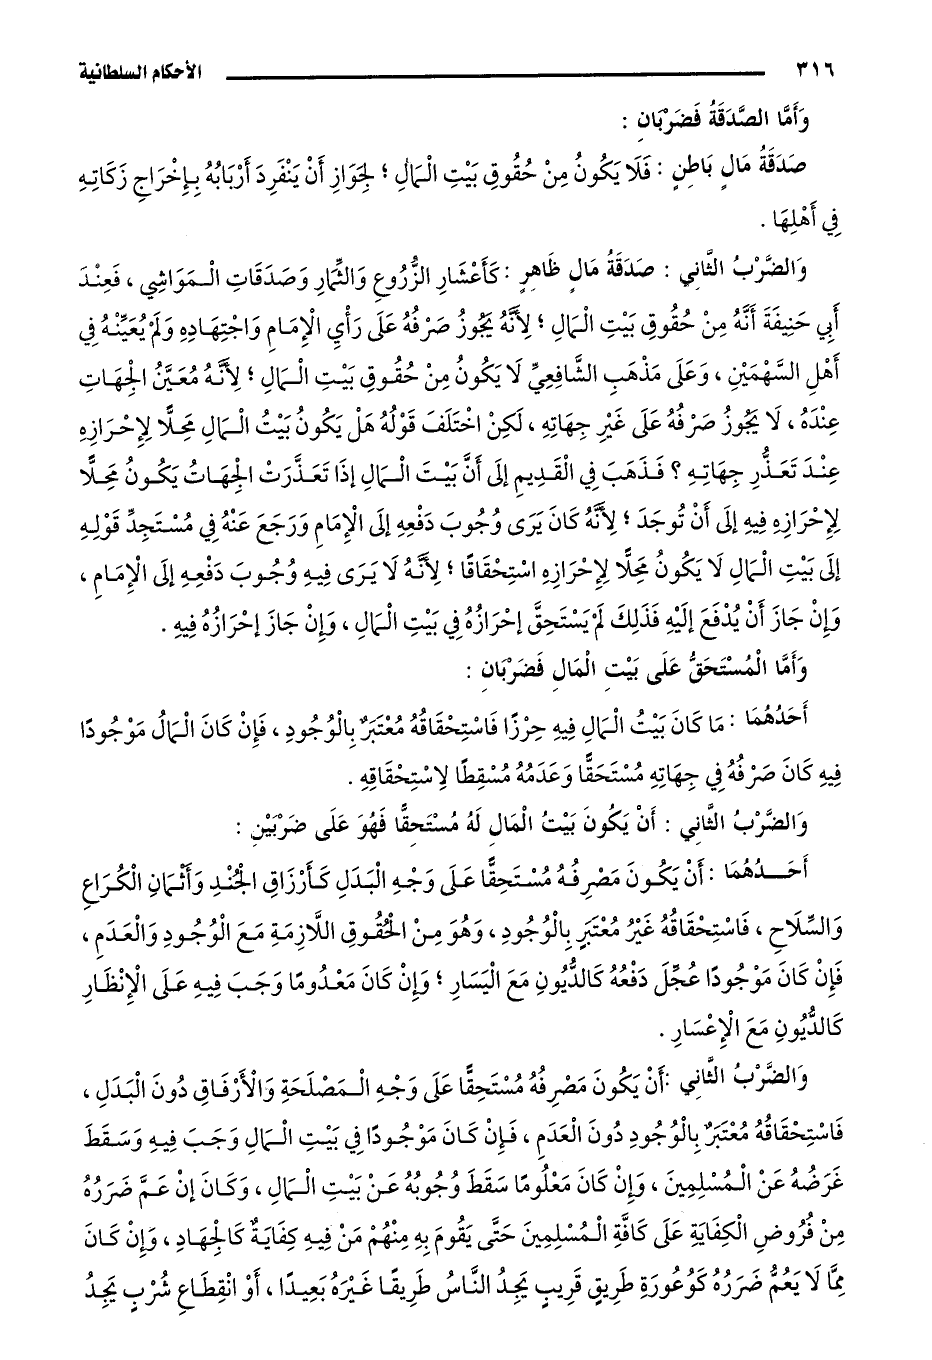 ٣١٦ الأحكام السلطانية
وَأَمَّا الصَّدَقَةُ فَضَرْبَانِ :
صَدَقَةُ مَالٍ بَاطِنٍ : فَلَا يَكُونُ مِنْ حُقُوقِ بَيْتِ الْمَالِ ؛ لِجَوَازِ أَنْ يَنْفَرِدَ أَرْبَابُهُ بِإِخْرَاجِ زَكَاتِهِ
فِي أَهْلِهَا .
وَالضَّرْبُ الثَّانِي : صَدَقَةُ مَالٍ ظَاهِرٍ : كَأَعْشَارِ الزُّرُوعِ وَالثِّمَارِ وَصَدَقَاتِ الْمَوَاشِي ، فَعِنْدَ
أَبِي حَنِيفَةَ أَنَّهُ مِنْ حُقُوقِ بَيْتِ الْمَالِ ؛ لِأَنَّهُ يَجُوزُ صَرْفُهُ عَلَى رَأْيِ الْإِمَامِ وَاجْتِهَادِهِ وَلَمْ يُعَيِّنْهُ فِي
أَهْلِ السَّهْمَيْنِ ، وَعَلَى مَذْهَبِ الشَّافِعِيِّ لَا يَكُونُ مِنْ حُقُوقِ بَيْتِ الْمَالِ ؛ لِأَنَّهُ مُعَيَّنُ الْجِهَاتِ
عِنْدَهُ ، لَا يَجُوزُ صَرْفُهُ عَلَى غَيْرِ جِهَاتِهِ ، لَكِنْ اخْتَلَفَ قَوْلُهُ هَلْ يَكُونُ بَيْتُ الْمَالِ مَحِلًّا لِإِحْرَازِهِ
عِنْدَ تَعَذُّرِ جِهَاتِهِ ؟ فَذَهَبَ فِي الْقَدِيمِ إلَى أَنَّ بَيْتَ الْمَالِ إذَا تَعَذَّرَتْ الْجِهَاتُ يَكُونُ مَحِلًّا
لِإِحْرَازِهِ فِيهِ إلَى أَنْ تُوجَدَ ؛ لِأَنَّهُ كَانَ يَرَى وُجُوبَ دَفْعِهِ إلَى الْإِمَامِ وَرَجَعَ عَنْهُ فِي مُسْتَجِدِّ قَوْلِهِ
إلَى بَيْتِ الْمَالِ لَا يَكُونُ مَحِلًّا لِإِحْرَازِهِ اسْتِحْقَاقًا ؛ لِأَنَّهُ لَا يَرَى فِيهِ وُجُوبَ دَفْعِهِ إلَى الْإِمَامِ ،
وَإِنْ جَازَ أَنْ يُدْفَعَ إلَيْهِ فَذَلِكَ لَمْ يَسْتَحِقَّ إحْرَازُهُ فِي بَيْتِ الْمَالِ ، وَإِنْ جَازَ إحْرَازُهُ فِيهِ .
وَأَمَّا الْمُسْتَحَقُّ عَلَى بَيْتِ الْمَالِ فَضَرْبَانِ :
أَحَدُهُمَا : مَا كَانَ بَيْتُ الْمَالِ فِيهِ حِرْزًا فَاسْتِحْقَاقُهُ مُعْتَبَرٌ بِالْوُجُودِ ، فَإِنْ كَانَ الْمَالُ مَوْجُودًا
فِيهِ كَانَ صَرْفُهُ فِي جِهَاتِهِ مُسْتَحَقًّا وَعَدَمُهُ مُسْقِطًا لِاسْتِحْقَاقِهِ .
وَالضَّرْبُ الثَّانِي : أَنْ يَكُونَ بَيْتُ الْمَالِ لَهُ مُسْتَحِقًّا فَهُوَ عَلَى ضَرْبَيْنِ :
أَحَدُهُمَا : أَنْ يَكُونَ مَصْرِفُهُ مُسْتَحِقًّا عَلَى وَجْهِ الْبَدَلِ كَأَرْزَاقِ الْجُنْدِ وَأَثْمَانِ الْكُرَاعِ
وَالسِّلَاحِ ، فَاسْتِحْقَاقُهُ غَيْرُ مُعْتَبَرٍ بِالْوُجُودِ ، وَهُوَ مِنْ الْحُقُوقِ اللَّازِمَةِ مَعَ الْوُجُودِ وَالْعَدَمِ ،
فَإِنْ كَانَ مَوْجُودًا عُجِّلَ دَفْعُهُ كَالدُّيُونِ مَعَ الْيَسَارِ ؛ وَإِنْ كَانَ مَعْدُومًا وَجَبَ فِيهِ عَلَى الْإِنْظَارِ
كَالدُّيُونِ مَعَ الْإِعْسَارِ .
وَالضَّرْبُ الثَّانِي : أَنْ يَكُونَ مَصْرِفُهُ مُسْتَحِقًّا عَلَى وَجْهِ الْمَصْلَحَةِ وَالْأَرْفَاقِ دُونَ الْبَدَلِ ،
فَاسْتِحْقَاقُهُ مُعْتَبَرٌ بِالْوُجُودِ دُونَ الْعَدَمِ ، فَإِنْ كَانَ مَوْجُودًا فِي بَيْتِ الْمَالِ وَجَبَ فِيهِ وَسَقَطَ
غَرَضُهُ عَنْ الْمُسْلِمِينَ ، وَإِنْ كَانَ مَعْلُومًا سَقَطَ وُجُوبُهُ عَنْ بَيْتِ الْمَالِ ، وَكَانَ إنْ عَمَّ ضَرَرُهُ
مِنْ فُرُوضِ الْكِفَايَةِ عَلَى كَافَّةِ الْمُسْلِمِينَ حَتَّى يَقُومَ بِهِ مِنْهُمْ مَنْ فِيهِ كِفَايَةٌ كَالْجِهَادِ ، وَإِنْ كَانَ
مِمَّا لَا يَعُمُّ ضَرَرُهُ كَوُعُورَةِ طَرِيقٍ قَرِيبٍ يَجِدُ النَّاسُ طَرِيقًا غَيْرَهُ بَعِيدًا ، أَوْ انْقِطَاعِ شُرْبٍ يَجِدُ